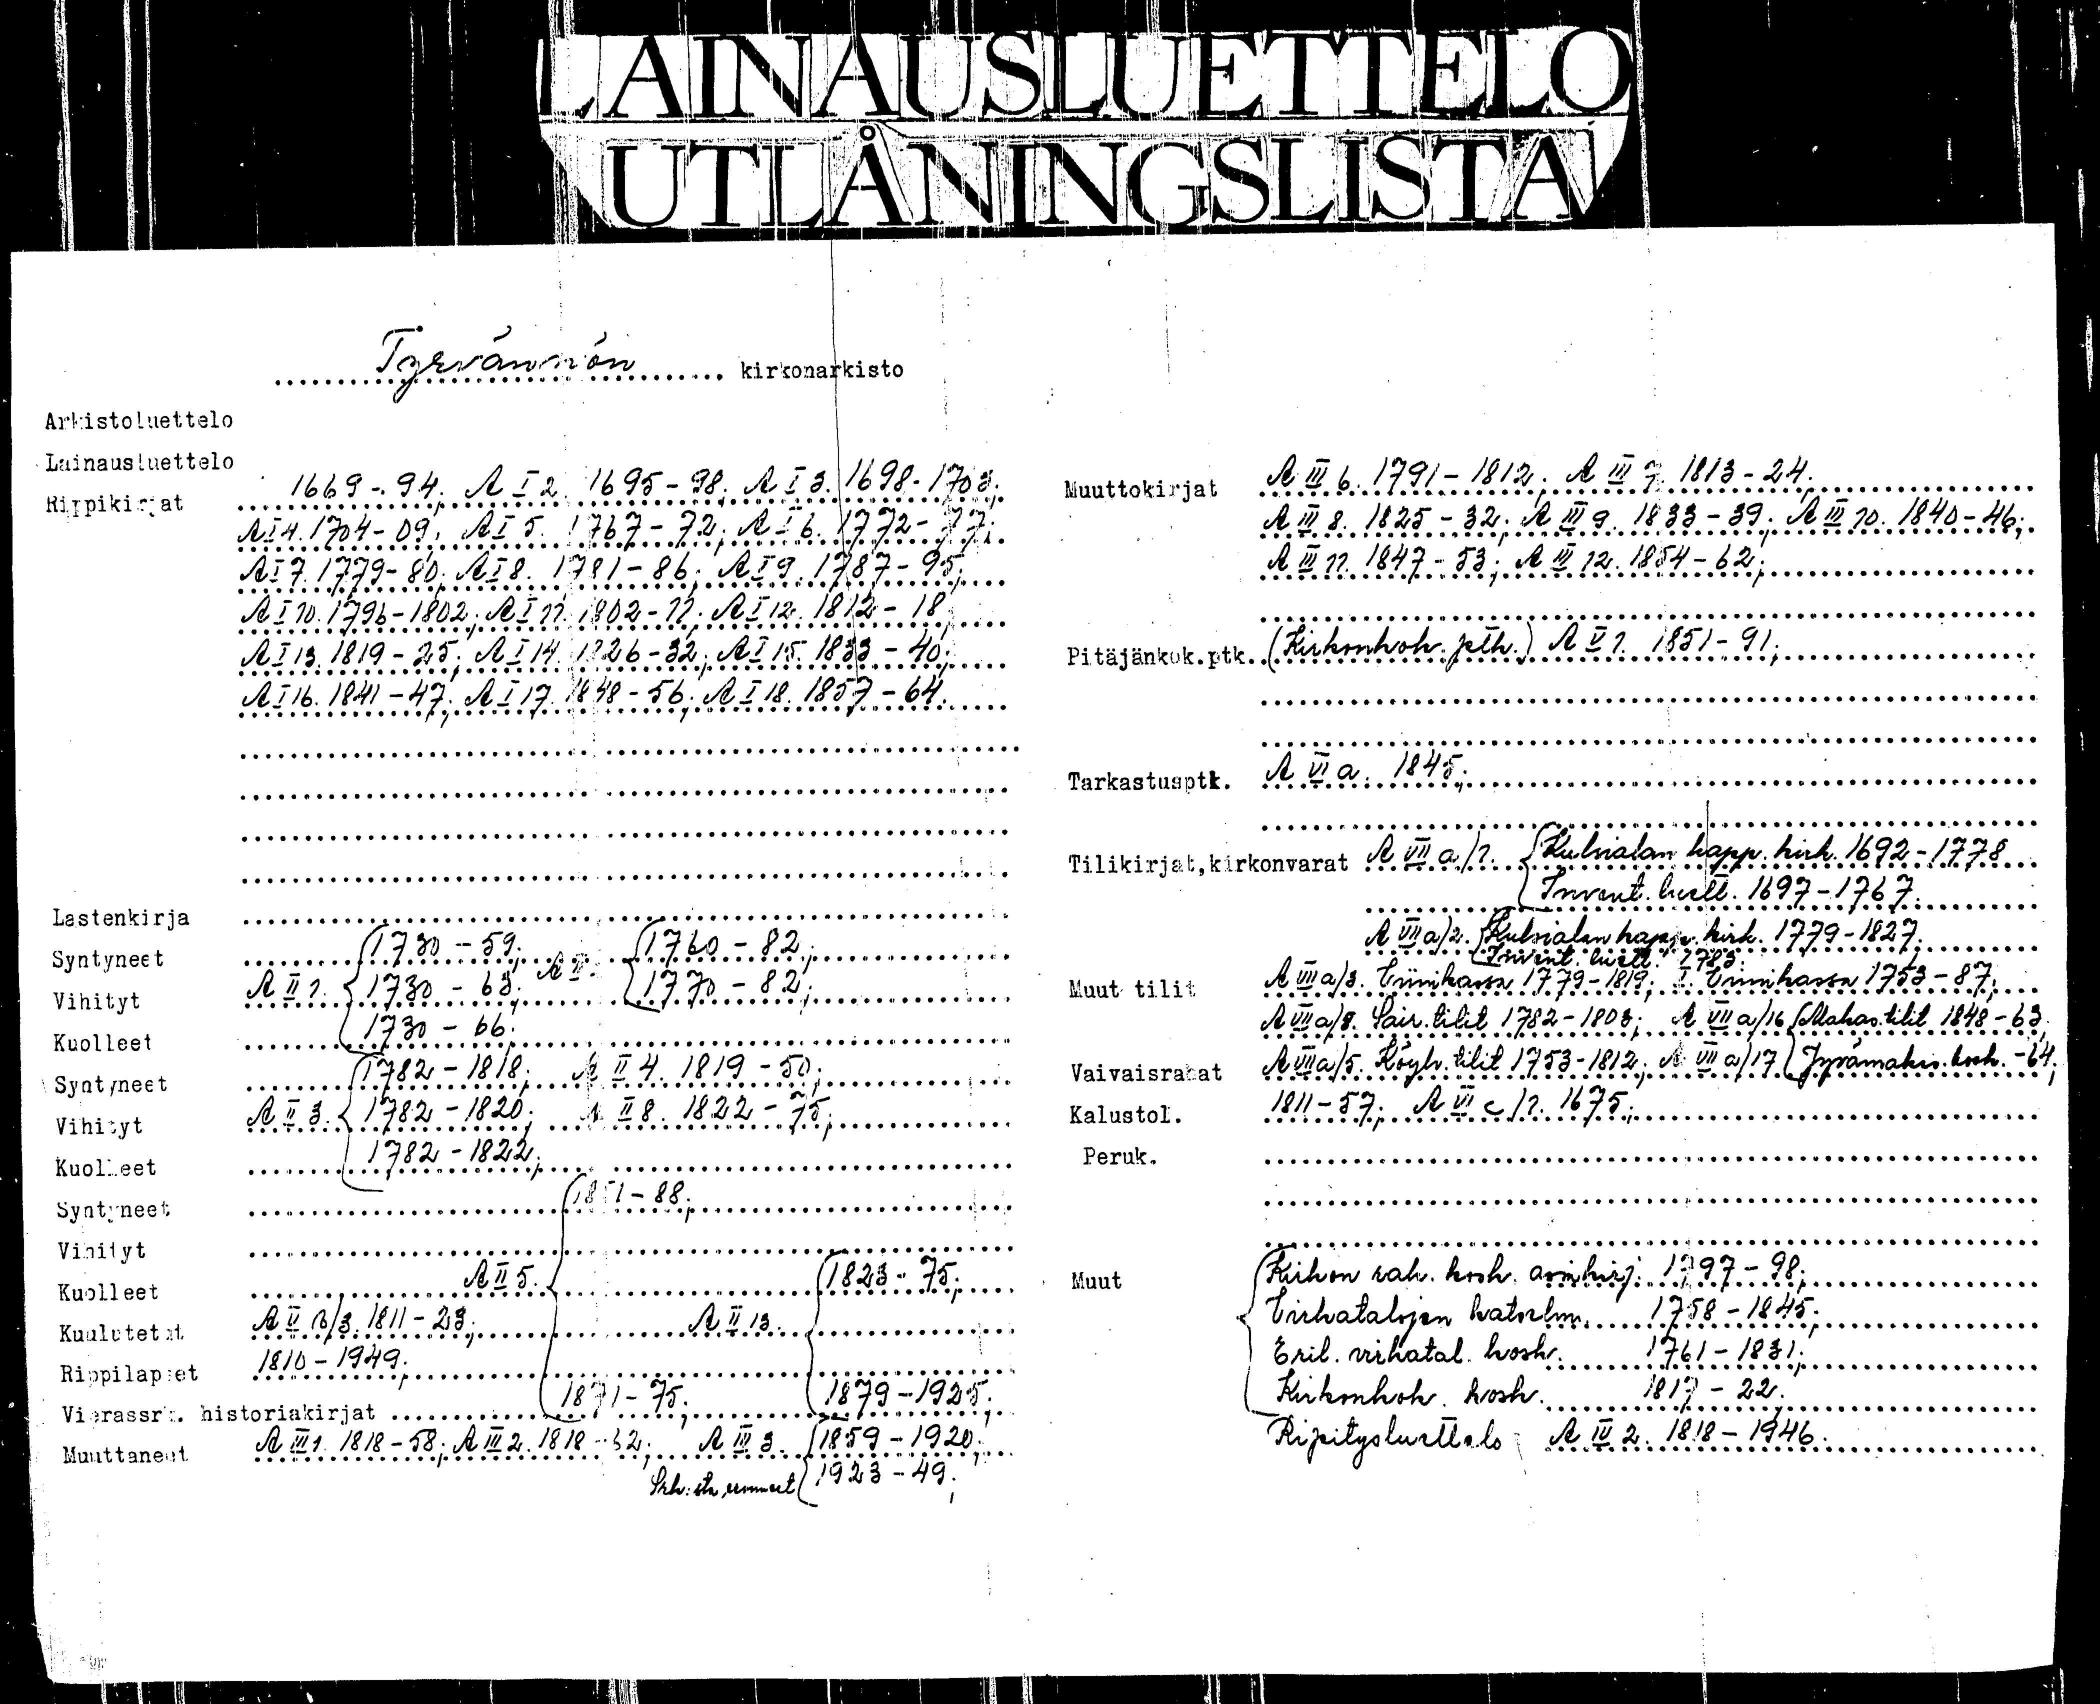 LAINAUSLUETTELO
UTLÅNINGSLISTA
Tyrvännön kirkonarkisto
Arkistoluettelo
Lainausluettelo
Rippikirjat 1669-94; A I 2. 1695-98; A I 3. 1698-1703;
A I 4. 1704-09; A I 5. 1767-72; A I 6. 1772-77;
A I 7. 1779-80; A I 8. 1781-86; A I 9. 1787-95;
A I 10. 1796-1802; A I 11. 1802-11; A I 12. 1812-18;
A I 13. 1819-25; A I 14. 1826-32; A I 15. 1833-40;
A I 16. 1841-47; A I 17. 1848-56; A I 18. 1857-64.
Lastenkirja
Syntyneet 1730-59; 1760-82;
Vihityt A II 1. 1730-63; A II 1770-82;
Kuolleet 1730-66.
Syntyneet 1782-1818; A II 4. 1819-50;
Vihityt A II 3. 1782-1820; A II 8. 1822-75;
Kuolleet 1782-1822;
Syntyneet 1851-88;
Vihityt
Kuolleet A II 5. 1823-75;
Kuulutetut A II 1811-23; A II 13.
Rippilapset 1810-1949;
Vierassrk. historiakirjat 1871-75; 1879-1925;
Muuttaneet A III 1. 1818-58; A III 2. 1818-62; A III 3. 1859-1920;
1923-49;
Muuttokirjat A III 6. 1791-1812; A III 7. 1813-24.
A III 8. 1825-32; A III 9. 1833-39; A III 10. 1840-46;
A III 11. 1847-53; A III 12. 1854-62;
Pitäjänkok.ptk. (Kirkonkok. ptk.) A V 1. 1851-91;
Tarkastusptk. A VI a. 1845;
Tilikirjat, kirkonvarat A VII a/1. Kulsialan kapp. kirk. 1692-1778
Invent. luett. 1697-1767.
A VII a/2. Kulsialan kapp. kirk. 1779-1827.
Invent. luett. 1783.
Muut tilit A VII a/3. Viinikassa 1779-1819; I. Viinikassa 1753-87;
A VII a/8. Sair. tilit 1782-1803; A VII a/16 Makas. tilit 1848-63
Vaivaisrahat A VII a/5. Köyh. tilit 1753-1812; A VII a/17 Jyvämakas. kosk. -64;
Kalustol. 1811-57; A VI c/1. 1675;
Peruk.
Muut Kirkon rah. kosk. asiakirj. 1797-98;
Virkatalojen katselm. 1758-1845;
Eril. virkatal. kosk. 1761-1831;
Kirkonkok. kosk. 1817-22.
Ripitysluettelo A IV 2. 1818-1946.